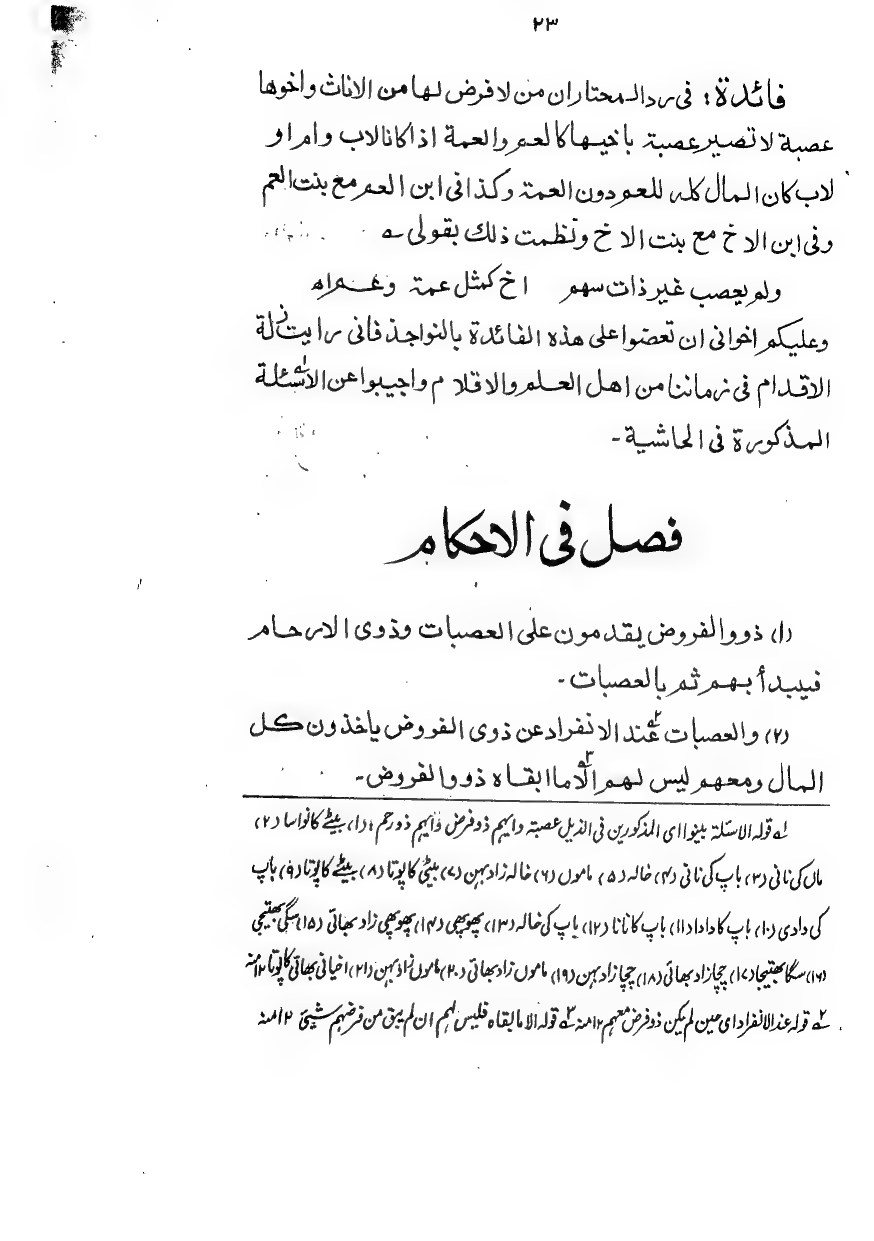 ۲۳
فائدة: فی ردالمحتاران من لا فرض لها من الاناث واخوها
عصبة لا تصیر عصبة باخیها کالعم والعمة اذا کانا لاب وام او
لاب کان المال کله للعم دون العمة وکذا فی ابن العم مع بنت العم
وفی ابن الاخ مع بنت الاخ ونظمت ذلك بقولی ؎
ولم یعصب غیر ذات سهم اخ کمثل عمة وعم اھ
وعلیکم اخوانی ان تعضوا علی هذه الفائدة بالنواجذ فانی رایت زلة
الاقدام فی زماننا من اهل العلم والاقلام واجیبوا عن الاسئلة
المذکورة فی الحاشیة۔
فصل فی الاحکام
(۱) ذووالفروض یقدمون علی العصبات وذوی الارحام
فیبدأ بهم ثم بالعصبات۔
(۲) والعصبات عند ۲ه الانفراد عن ذوی الفروض یاخذون کل
المال ومعهم لیس لهم الا ۳ه ما ابقاه ذووالفروض۔
۱ه قوله الاسئلة بینوا ای المذکورین فی الذیل عصبة وایهم ذوفرض وایهم ذورحم: (۱) بیٹے کا نواسا (۲)
ماں کی نانی (۳) باپ کی نانی (۴) خالہ (۵) ماموں (۶) خالہ زاد بہن (۷) بیٹی کا پوتا (۸) بیٹے کا پوتا (۹) باپ
کی دادی (۱۰) باپ کا دادا (۱۱) باپ کا نانا (۱۲) باپ کی خالہ (۱۳) پھوپھی (۱۴) پھوپھی زاد بھائی (۱۵) سگی بھتیجی
(۱۶) سگا بھتیجا (۱۷) چچازاد بھائی (۱۸) چچازاد بہن (۱۹) ماموں زاد بھائی (۲۰) ماموں زاد بہن (۲۱) اخیافی بھائی کا پوتا ۱۲ منہ
۲ه قوله عند الانفراد ای حین لم یکن ذوفرض معهم ۱۲ منہ ۳ه قوله الا ما ابقاه فلیس لهم ان لم یبق من فرضهم شیئ ۱۲ منہ